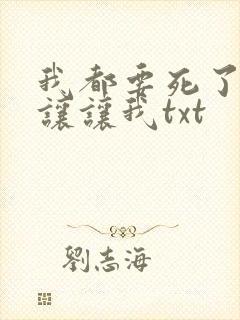 我都要死了
讓讓我txt
劉志海